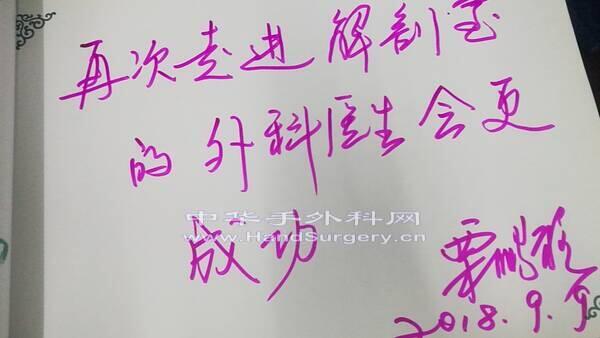 再次走进解剖室
的外科医生会更
成功
中华手外科网
www.HandSurgery.cn
栗鹏程
2018.9.9